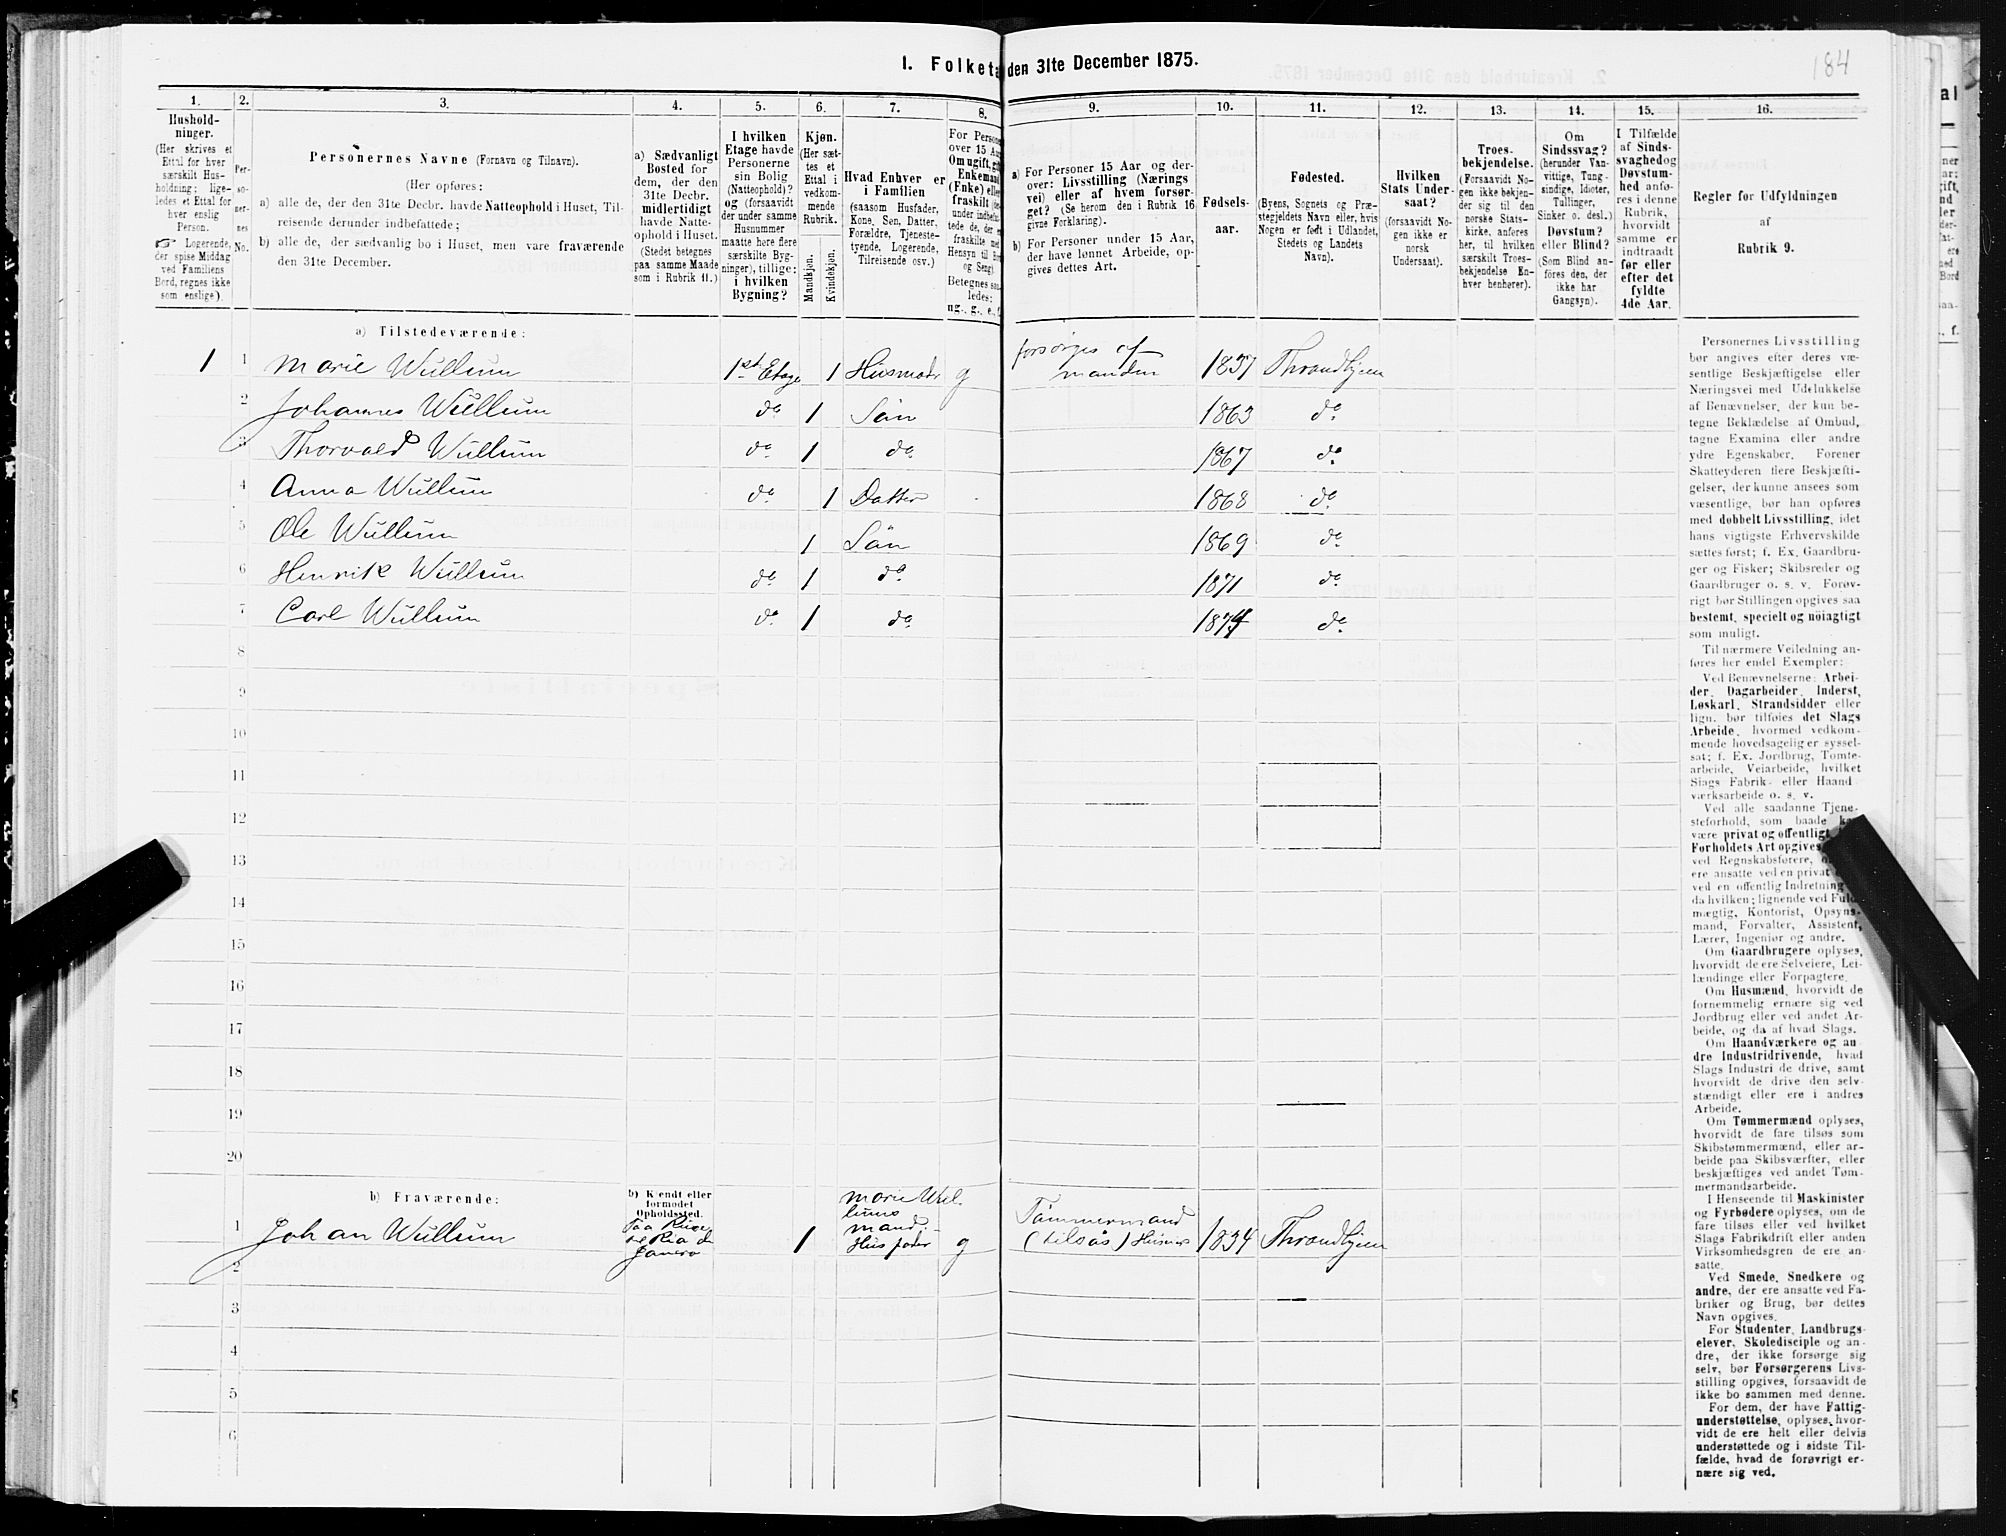 1. Folketæ den 31te December 1875.
184
1.
Hushold-
ninger.
(Her skrives et
Ettal for hver
særskilt Hus-
holdning; lige-
ledes et Ettal for
hver enslig
Person.
☞ Logerende,
der spise Middag
ved Familiens
Bord, regnes ikke
som enslige).
2.
Per-
so-
ner-
nes
No.
3.
Personernes Navne (Fornavn og Tilnavn).
(Her opføres:
a) alle de, der den 31te Decbr. havde Natteophold i Huset, Til-
reisende derunder indbefattede;
b) alle de, der sædvanlig bo i Huset, men vare fraværende
den 31te December.
4.
a) Sædvanligt
Bosted for
dem, der den
31te Decbr.
midlertidigt
havde Natte-
ophold i Huset.
(Stedet betegnes
paa samme Maade
som i Rubrik 11.)
5.
I hvilken
Etage havde
Personerne
sin Bolig
(Natteophold)?
og (forsaavidt
der under samme
Husnummer
maatte høre flere
særskilte Byg-
ninger), tillige:
i hvilken
Bygning?
6.
Kjøn.
(Her sæt-
tes et
Ettal i
vedkom-
mende
Rubrik.
Mandkjøn.
Kvindekjøn.
7.
Hvad Enhver er
i Familien
(saasom Husfader,
Kone, Søn, Datter,
Forældre, Tjeneste-
tyende, Logerende,
Tilreisende osv.)
8.
For Person
over 15 Aa
Om ugift, g
Enkemand
(Enke) elle
fraskilt
under indbefat
tede de, der e
fraskilte m
Hensyn til B
og Seng).
Betegnes saa
ledes:
ug., g., e., f.
9.
a) For Personer 15 Aar og der-
over: Livsstilling (Nærings
vei) eller af hvem forsør-
get? (Se herom den i Rubrik 16
givne Forklaring).
b) For Personer under 15 Aar,
der have lønnet Arbeide, op-
gives dettes Art.
10.
Fødsels-
aar.
11.
Fødested.
(Byens, Sognets og Præ-
stegjeldets Navn eller, hvis
Nogen er født i Udlandet,
Stedets og Landets
Navn).
12.
Hvilken
Stats Under-
saat?
(forsaavidt No-
gen ikke er
norsk
Undersaat).
13.
Troes-
bekjendelse.
(Forsaavidt No-
gen ikke bekjen-
der sig til den
norske Stats-
kirke, anføres
her, til hvilken
særskilt Troes-
bekjendelse En-
hver henhører).
14.
Om
Sindssvag?
(herunder Van-
vittige, Tung-
sindige, Idioter,
Tullinger,
Sinker o. desl.)
Døvstum?
eller Blind?
(Som Blind an-
føres den, der
ikke har
Gangsyn).
15.
I Tilfælde
af Sinds-
svaghed og
Døvstum-
hed anfø-
res i denne
Rubrik,
hvorvidt
samme er
indtraadt
før eller
efter det
fyldte
4de Aar.
16.
Regler for Udfyldningen
af
Rubrik 9.
a) Tilstedeværende:
1 1 Marie Wullum 1st Etage 1 Husmoder g forsørges af manden 1837 Throndhjem
2 Johannes Wullum do 1 Søn 1863 do
3 Thorvald Wullum do 1 do 1867 do
4 Anna Wullum do 1 Datter 1868 do
5 Ole Wullum 1 Søn 1869 do
6 Henrik Wullum do 1 do 1871 do
7 Carl Wullum do 1 do 1874 do
8
9
10
11
12
13
14
15
16
17
18
19
20
b) Fraværende:
b) Kjendt eller
formodet
Opholdssted.
1 Johan Wullum Paa Reise til Rio de Janero 1 Marie Wullums mand. Husfader g Tømmermand (tilsøs) 1834 Throndhjem
2
3
4
5
6
Personernes Livsstilling
bør angives efter deres væ-
sentlige Beskjæftigelse eller
Næringsvei med Udelukkelse
af Benævnelser, der kun be-
tegne Beklædelse af Ombud,
tagne Examina eller andre
ydre Egenskaber. Forener
Skatteyderen flere Beskjæfti-
gelser, der kunne ansees som
væsentlige, bør han opføres
med dobbelt Livsstilling, idet
hans vigtigste Erhvervskilde
sættes først; f. Ex. Gaardbru-
ger og Fisker; Skibsreder og
Gaardbruger o. s. v. Forøv-
rigt bør Stillingen opgives saa
bestemt, specielt og nöiagtigt
som muligt.
Til nærmere Veiledning an-
føres her endel Exempler:
Ved Benævnelserne: Arbei-
der, Dagarbeider, Inderst,
Løskarl, Strandsidder eller
lign. bør tilføies det Slags
Arbeide, hvormed vedkom-
mende hovedsagelig er syssel-
sat; f. Ex. Jordbrug, Tomte-
arbeide, Veiarbeide, hvilket
Slags Fabrik- eller Haand-
værksarbeide o. s. v.
Ved alle saadanne Tjene-
steforhold, som baade
være privat og offentligt
Forholdets Art opgives
ved Regnskabsførere,
ere ansatte ved en privat
ved en offentlig Indretning
da hvilken; lignende ved Fuld-
mægtig, Kontorist, Opsyns-
mand, Forvalter, Assistent,
Lærer, Ingeniør og andre.
Om Gaardbrugere oplyses,
hvorvidt de ere Selveiere, Lei-
lændinge eller Forpagtere.
Om Husmænd, hvorvidt de
fornemmelig ernære sig ved
Jordbrug eller ved andet Ar-
beide, og da af hvad Slags.
Om Haandværkere og an
dre Industridrivende, hvad
Slags Industri de drive, samt
hvorvidt de drive den selv-
stændigt eller ere i andres
Arbeide.
Om Tømmermænd oplyses,
hvorvidt de fare tilsøs som
Skibstømmermænd, eller ar-
beide paa Skibsværfter, eller
beskjæftiges ved andet Tøm-
mermandsarbeide.
I Henseende til Maskinister
og Fyrbødere oplyses, om de
fare tilsøs eller ved hvilket
Slags Fabrikdrift eller anden
Virksomhedsgren de ere an-
satte.
Ved Smede, Snedkere og
andre, der ere ansatte ved Fa-
briker og Brug, bør dettes
Navn opgives.
For Studenter, Landbrugs-
elever, Skoledisciple og an-
dre, der ikke forsørge sig
selv, bør Forsørgerens Livs-
stilling opgives, forsaavidt de
ikke bo sammen med denne.
For dem, der have Fattig-
understøttelse, oplyses, hvor-
vidt de ere helt eller delvis
understøttede og i sidste Til-
fælde, hvad de forøvrigt er-
nære sig ved.